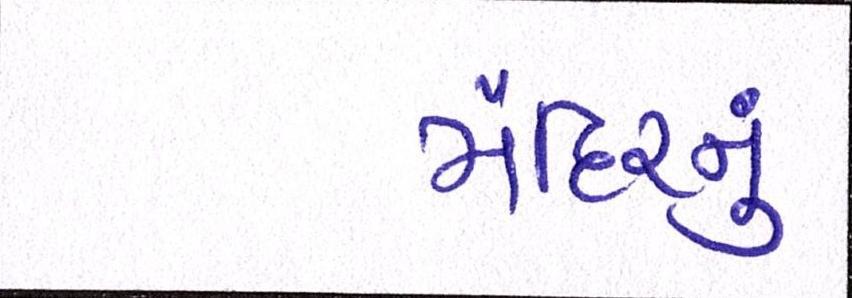 મંદિરનું